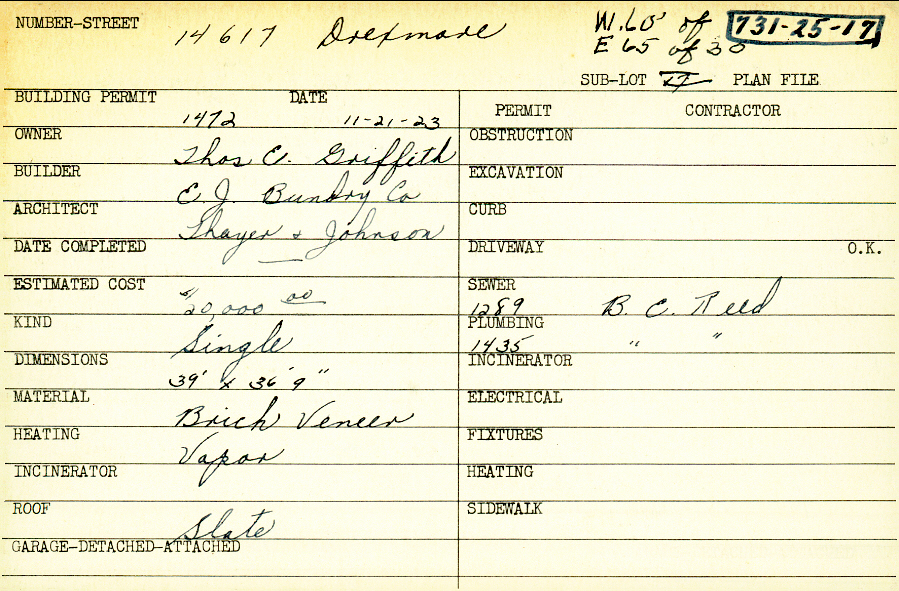 NUMBER-STREET 14617 Drexmore W. 60' of 731-25-17
E 65 of 30
SUB-LOT PLAN FILE
BUILDING PERMIT DATE
1472 11-21-23
PERMIT CONTRACTOR
OWNER
Thos E. Griffith
OBSTRUCTION
BUILDER
E. J. Bundry Co
EXCAVATION
ARCHITECT
Thayer & Johnson
CURB
DATE COMPLETED
DRIVEWAY O.K.
ESTIMATED COST
$20,000 00
SEWER
1289 B. C. Reed
KIND
Single
PLUMBING
1435 " "
DIMENSIONS
39' x 36' 9"
INCINERATOR
MATERIAL
Brick Veneer
ELECTRICAL
HEATING
Vapor
FIXTURES
INCINERATOR
HEATING
ROOF
Slate
SIDEWALK
GARAGE-DETACHED-ATTACHED